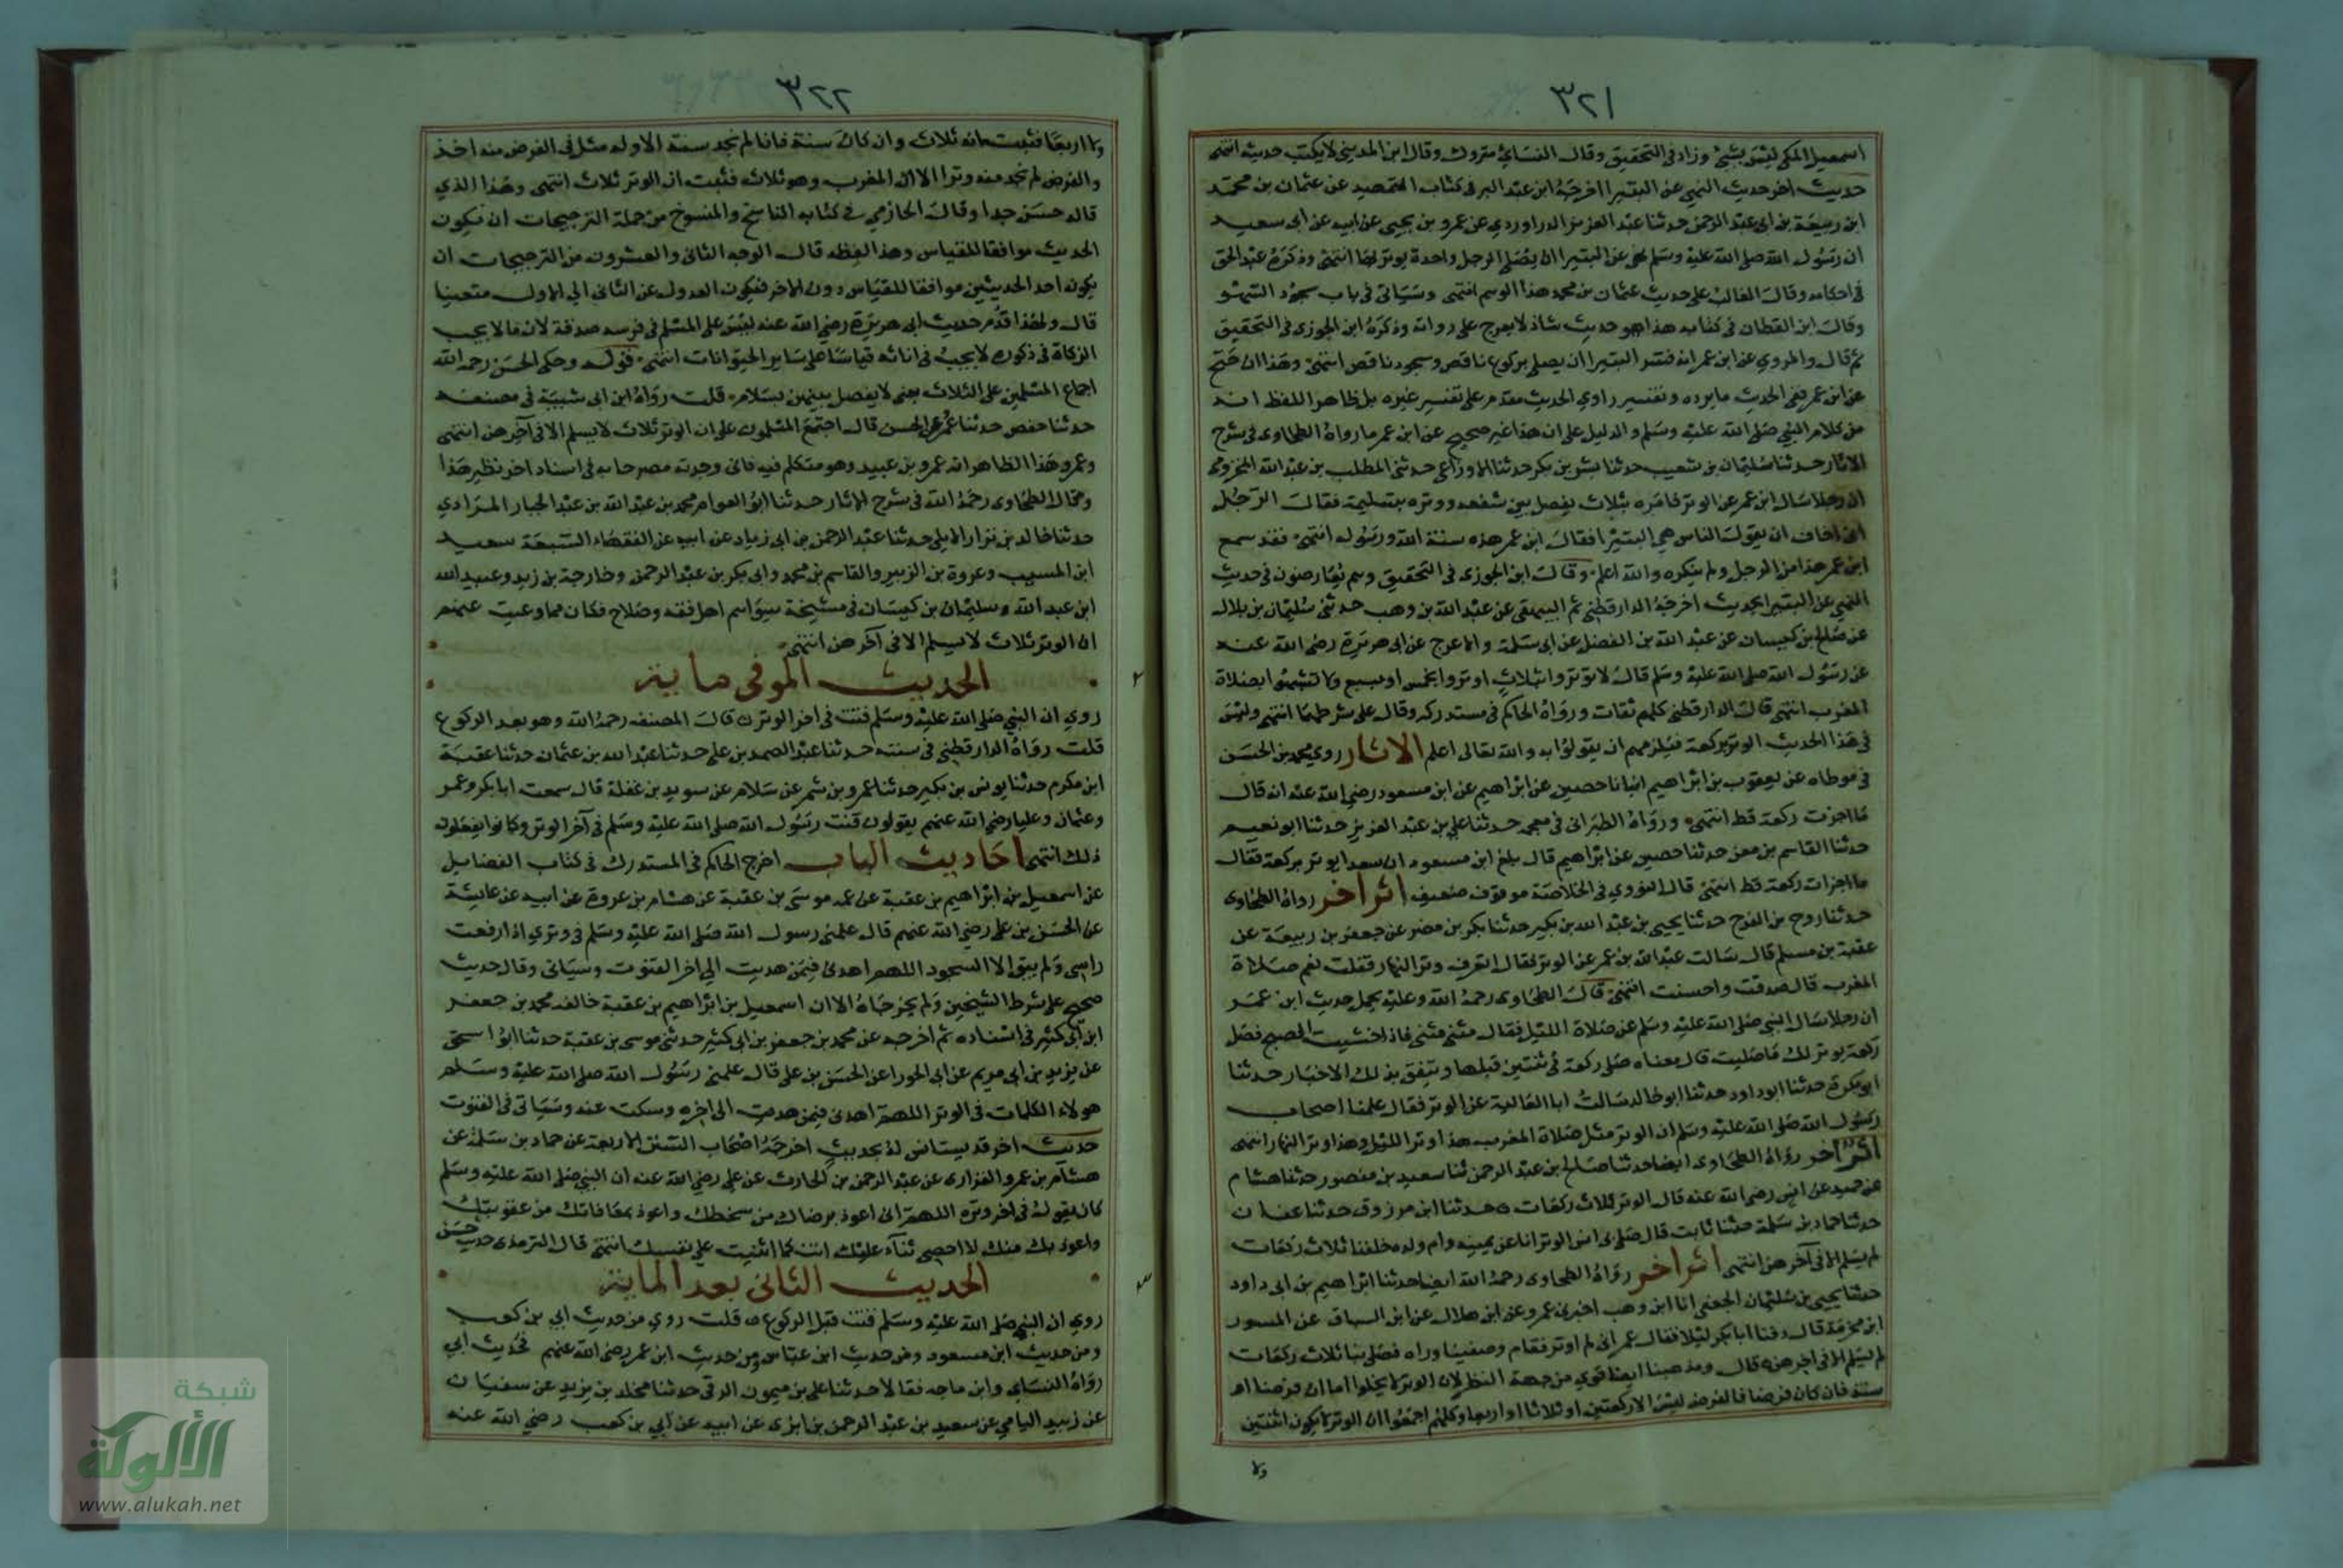 ٣٢١
اسمعيل المكي ليس بشئ وزاد في التحقيق وقال النسائي متروك وقال ابن المديني لا يكتب حديثه انتهى
حديث اخر حديث النهي عن البتيرا اخرجه ابن عبد البر في كتاب التمهيد عن عثمان بن محمد
ابن ربيعة بن ابي عبد الرحمن حدثنا عبد العزيز الدراوردي عن عمرو بن يحيى عن ابيه عن ابي سعيد
ان رسول الله صلى الله عليه وسلم نهى عن البتيرا ان يصلى الرجل واحدة يوتر بها انتهى وذكره عبد الحق
في احكامه وقال الغالب على حديث عثمان بن محمد هذا الوهم انتهى وسياتى في باب سجود السهو
وقال ابن القطان في كتابه هذا هو حديث شاذ لا يعرج على رواته وذكره ابن الجوزى في التحقيق
ثم قال والمروي عن ابن عمر انه فسر البتيرا ان يصلى بركوع ناقص وسجود ناقص انتهى وهذا ان صح
عن ابن عمر ففى الحديث ما يرده وتفسير راوي الحديث مقدم على تفسير غيره بل ظاهر اللفظ انه
من كلام النبي صلى الله عليه وسلم والدليل على ان هذا غير صحيح عن ابن عمر ما رواه الطحاوى في شرح
الاثار حدثنا سليمان بن شعيب حدثنا بشر بن بكر حدثنا الاوزاعى حدثنى المطلب بن عبد الله المخزومى
ان رجلا سال ابن عمر عن الوتر فامره بثلاث يفصل بين شفعه ووتره بتسليمة فقال الرجل
انى اخاف ان يقول الناس هي البتيرا فقال ابن عمر هذه سنة الله ورسوله انتهى فقد سمع
ابن عمر هذا من الرجل ولم ينكره والله اعلم وقال ابن الجوزى في التحقيق وهم يعارضون في حديث
النهي عن البتيرا بحديث اخرجه الدارقطني ثم البيهقى عن عبد الله بن وهب حدثنى سليمان بن بلال
عن صالح بن كيسان عن عبد الله بن الفضل عن ابي سلمة والاعرج عن ابي هريرة رضى الله عنه
عن رسول الله صلى الله عليه وسلم قال لا توتروا بثلاث اوتروا بخمس او بسبع ولا تشبهوا بصلاة
المغرب انتهى قال الدارقطني كلهم ثقات ورواه الحاكم في مستدركه وقال على شرطهما انتهى وليس
في هذا الحديث الوتر بركعة فيلزمهم ان يقولوا به والله تعالى اعلم الاثار روى محمد بن الحسن
في موطاه عن يعقوب بن ابراهيم انبانا حصين عن ابراهيم عن ابن مسعود رضى الله عنه انه قال
ما اجزت ركعة قط انتهى ورواه الطبرانى في معجمه حدثنا على بن عبد العزيز حدثنا ابو نعيم
حدثنا القاسم بن معن حدثنا حصين عن ابراهيم قال بلغ ابن مسعود ان سعدا يوتر بركعة فقال
ما اجزات ركعة قط انتهى قال النووي في الخلاصة موقوف ضعيف اثر اخر رواه الطحاوى
حدثنا روح بن الفرج حدثنا يحيى بن عبد الله بن بكير حدثنا بكر بن مضر عن جعفر بن ربيعة عن
عقبة بن مسلم قال سالت عبد الله بن عمر عن الوتر فقال اتعرف وتر النهار فقلت نعم صلاة
المغرب قال صدقت واحسنت انتهى قال الطحاوى رحمه الله وعليه يحمل حديث ابن عمر
ان رجلا سال النبي صلى الله عليه وسلم عن صلاة الليل فقال مثنى مثنى فاذا خشيت الصبح فصل
ركعة يوتر لك ما صليت قال معناه صلى ركعة في ثنتين قبلها وتتفق بذلك الاخبار حدثنا
ابو بكرة حدثنا ابو داود حدثنا ابو خالد سالت ابا العالية عن الوتر فقال علمنا اصحاب
رسول الله صلى الله عليه وسلم ان الوتر مثل صلاة المغرب هذا وتر الليل وهذا وتر النهار انتهى
اثر اخر رواه الطحاوى ايضا حدثنا صالح بن عبد الرحمن ثنا سعيد بن منصور حدثنا هشام
عن حميد عن انس رضى الله عنه قال الوتر ثلاث ركعات حدثنا ابن مرزوق حدثنا عفان
حدثنا حماد بن سلمة حدثنا ثابت قال صلى بى انس الوتر انا عن يمينه وام ولده خلفنا ثلاث ركعات
لم يسلم الا في آخرهن انتهى اثر اخر رواه الطحاوى رحمه الله ايضا حدثنا ابراهيم بن ابى داود
حدثنا يحيى بن سليمان الجعفى انا ابن وهب اخبرنى عمرو عن ابن هلال عن ابن السباق عن المسور
ابن مخرمة قال دفنا ابا بكر ليلا فقال عمر انى لم اوتر فقام وصفينا وراه فصلى بنا ثلاث ركعات
لم يسلم الا في اخرهن قال ومذهبنا ايضا قوي من جهة النظر لان الوتر لا يخلوا اما ان فرضا او
سنة فان كان فرضا فالفرض ليس الا ركعتين او ثلاثا او اربعا وكلهم اجمعوا ان الوتر لا يكون اثنتين
ولا
٣٢٢
ولا اربعا فثبت انه ثلاث وان كان سنة فانا لم نجد سنة الا وله مثل في الفرض منه اخذ
والفرض لم نجد منه وترا الا ان المغرب وهو ثلاث فثبت ان الوتر ثلاث انتهى وهذا الذي
قاله حسن جدا وقال الحازمي في كتابه الناسخ والمنسوخ من جملة الترجيحات ان يكون
الحديث موافقا للقياس وهذا لفظه قال الوجه الثانى والعشرون من الترجيحات ان
يكون احد الحديثين موافقا للقياس دون الاخر فيكون العدول عن الثانى الى الاول متعينا
قال ولهذا قدم حديث ابى هريرة رضي الله عنه ليس على المسلم في فرسه صدقة لان ما لا يجب
الزكاة في ذكوره لا يجب في اناثه قياسا على ساير الحيوانات انتهى قوله وحكى الحسن رحمه الله
اجماع المسلمين على الثلاث يعنى لا يفصل بينهن بسلام قلت رواه ابن ابى شيبة في مصنفه
حدثنا حفص حدثنا عمرو عن الحسن قال اجتمع المسلمون على ان الوتر ثلاث لا يسلم الا في آخرهن انتهى
وعمرو هذا الظاهر انه عمرو بن عبيد وهو متكلم فيه فانى وجدته مصرحا به في اسناد اخر نظير هذا
وقال الطحاوى رحمه الله في شرح الاثار حدثنا ابو العوام محمد بن عبد الله بن عبد الجبار المرادي
حدثنا خالد بن نزار الايلى حدثنا عبد الرحمن بن ابى زياد عن ابيه عن الفقهاء السبعة سعيد
ابن المسيب وعروة بن الزبير والقاسم بن محمد وابى بكر بن عبد الرحمن وخارجة بن زيد وعبيد الله
ابن عبد الله وسليمان بن كيسان في مشيخة سواهم اهل فقه وصلاح فكان مما وعيت عنهم
ان الوتر ثلاث لا يسلم الا في آخرهن انتهى
الحديث الموفى ماية
روي ان النبي صلى الله عليه وسلم قنت في اخر الوتر قال المصنف رحمه الله وهو بعد الركوع
قلت رواه الدارقطني في سننه حدثنا عبد الصمد بن على حدثنا عبد الله بن عثمان حدثنا عقبة
ابن مكرم حدثنا يونس بن بكير حدثنا عمرو بن شمر عن سلام عن سويد بن غفلة قال سمعت ابا بكر وعمر
وعثمان وعليا رضي الله عنهم يقولون قنت رسول الله صلى الله عليه وسلم في آخر الوتر وكانوا يفعلون
ذلك انتهى احاديث الباب اخرج الحاكم في المستدرك في كتاب الفضايل
عن اسمعيل بن ابراهيم بن عقبة عن عمه موسى بن عقبة عن هشام بن عروة عن ابيه عن عايشة
عن الحسن بن على رضي الله عنهم قال علمنى رسول الله صلى الله عليه وسلم في وتري اذا رفعت
راسى ولم يبق الا السجود اللهم اهدنى فيمن هديت الى اخر القنوت وسياتى وقال حديث
صحيح على شرط الشيخين ولم يخرجاه الا ان اسمعيل بن ابراهيم بن عقبة خالفه محمد بن جعفر
ابن ابى كثير في اسناده ثم اخرجه عن محمد بن جعفر بن ابى كثير حدثنى موسى بن عقبة حدثنا ابو اسحق
عن يزيد بن ابى مريم عن ابى الحورا عن الحسن بن على قال علمنى رسول الله صلى الله عليه وسلم
هولاء الكلمات في الوتر اللهم اهدنى فيمن هديت الى اخره وسكت عنه وسياتى في القنوت
حديث اخر قد يستانس له بحديث اخرجه اصحاب السنن الاربعة عن حماد بن سلمة عن
هشام بن عمرو الفزارى عن عبد الرحمن بن الحارث عن على رضي الله عنه ان النبي صلى الله عليه وسلم
كان يقول في اخر وتره اللهم انى اعوذ برضاك من سخطك واعوذ بمعافاتك من عقوبتك
واعوذ بك منك لا احصى ثناء عليك انت كما اثنيت على نفسك انتهى قال الترمذى حديث حسن
الحديث الثانى بعد الماية
روي ان النبي صلى الله عليه وسلم قنت قبل الركوع قلت روي من حديث ابى بن كعب
ومن حديث ابن مسعود ومن حديث ابن عباس ومن حديث ابن عمر رضى الله عنهم فحديث ابى
رواه النسائى وابن ماجه فقالا حدثنا على بن ميمون الرقى حدثنا مخلد بن يزيد عن سفيان
عن زبيد اليامى عن سعيد بن عبد الرحمن بن ابزى عن ابيه عن ابى بن كعب رضي الله عنه
شبكة
الألوكة
www.alukah.net